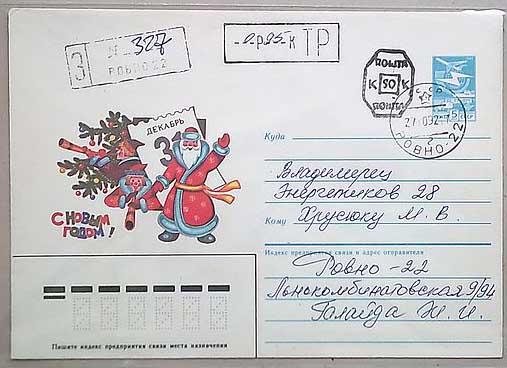 З
№ 327
РОВНО 22
-0р.95-к ТР
ПОШТА
К 50 К
ПОШТА
РОВНО 22
ДЕКАБРЬ
31
С НОВЫМ
ГОДОМ!
Куда
Владимирец
Энергетиков 28
Кому Хрусюку М. В.
Индекс предприятия связи и адрес отправителя
Ровно - 22
Льнокомбинатовская 9/94
Голайда Ж. И.
Пишите индекс предприятия связи места назначения